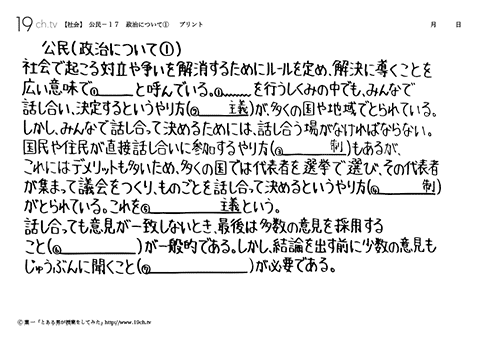 19ch.tv 【社会】 公民－１７ 政治について① プリント 月 日
公民(政治について①)
社会で起こる対立や争いを解消するためにルールを定め、解決に導くことを
広い意味で①______と呼んでいる。①______を行うしくみの中でも、みんなで
話し合い、決定するというやり方(②______主義)が、多くの国や地域でとられている。
しかし、みんなで話し合って決めるためには、話し合う場がなければならない。
国民や住民が直接話し合いに参加するやり方(③______制)もあるが、
これにはデメリットも多いため、多くの国では代表者を選挙で選び、その代表者
が集まって議会をつくり、ものごとを話し合って決めるというやり方(④______制)
がとられている。これを⑤______主義という。
話し合っても意見が一致しないとき、最後は多数の意見を採用する
こと(⑥______)が一般的である。しかし、結論を出す前に少数の意見も
じゅうぶんに聞くこと(⑦______)が必要である。
© 葉一「とある男が授業をしてみた」http://www.19ch.tv